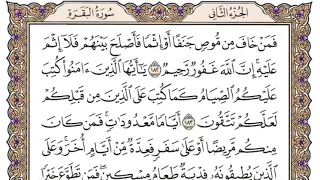 سُورَةُ البَقَرَةِ
الجُزْءُ الثَّانِي
فَمَنْ خَافَ مِن مُّوصٍ جَنَفًا أَوْ إِثْمًا فَأَصْلَحَ بَيْنَهُمْ فَلَآ إِثْمَ
عَلَيْهِ إِنَّ ٱللَّهَ غَفُورٌ رَّحِيمٌ ١٨٢ يَٰٓأَيُّهَا ٱلَّذِينَ ءَامَنُوا۟ كُتِبَ
عَلَيْكُمُ ٱلصِّيَامُ كَمَا كُتِبَ عَلَى ٱلَّذِينَ مِن قَبْلِكُمْ
لَعَلَّكُمْ تَتَّقُونَ ١٨٣ أَيَّامًا مَّعْدُودَٰتٍ فَمَن كَانَ
مِنكُم مَّرِيضًا أَوْ عَلَىٰ سَفَرٍ فَعِدَّةٌ مِّنْ أَيَّامٍ أُخَرَ وَعَلَى
ٱلَّذِينَ يُطِيقُونَهُۥ فِدْيَةٌ طَعَامُ مِسْكِينٍ فَمَن تَطَوَّعَ خَيْرًا